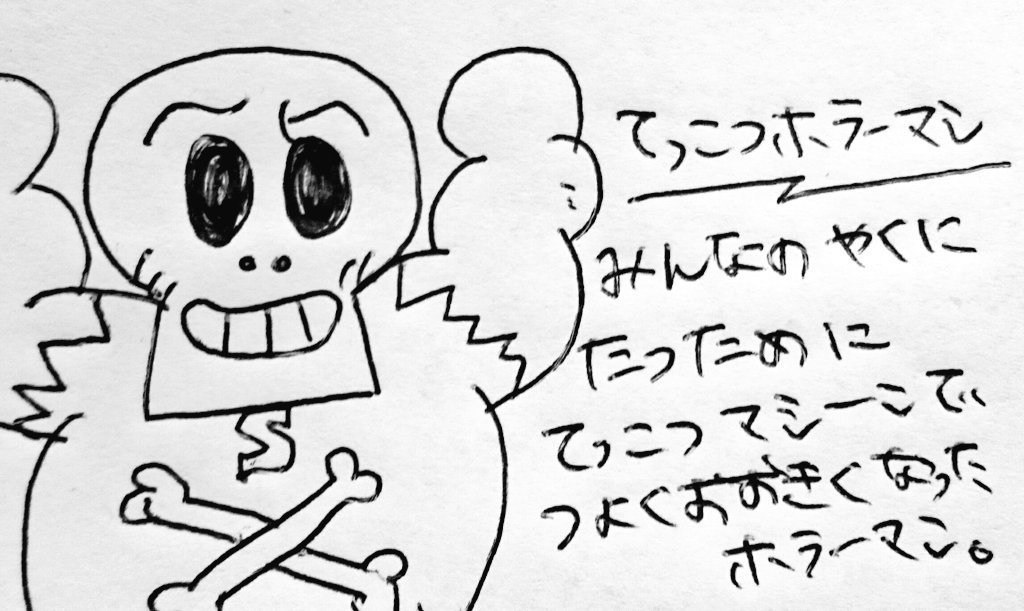 てっこつホラーマン
みんなの やくに
たつために
てっこつ マシーンで、
つよくおおきくなった
ホラーマン。